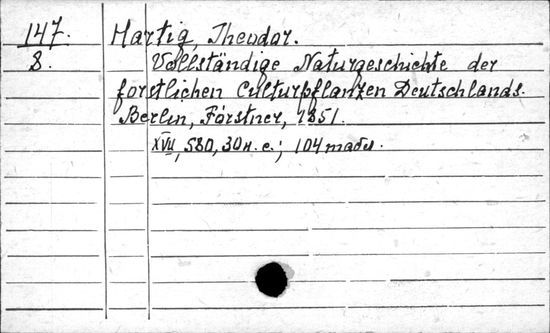 147. Hartig, Theodor.
8. Vollständige Naturgeschichte der
forstlichen Culturpflanzen Deutschlands.
Berlin, Förstner, 1851.
XVII, 580, 30 н. с.; 104 табл.